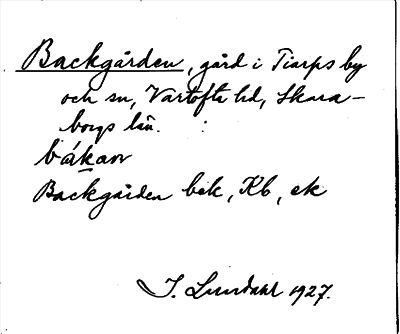 Backgården, gård i Tiarps by
och sn, Vartofta hd, Skara-
borgs län.
bákan
Backgården bek, Kb, ek
J. Lundahl 1927.